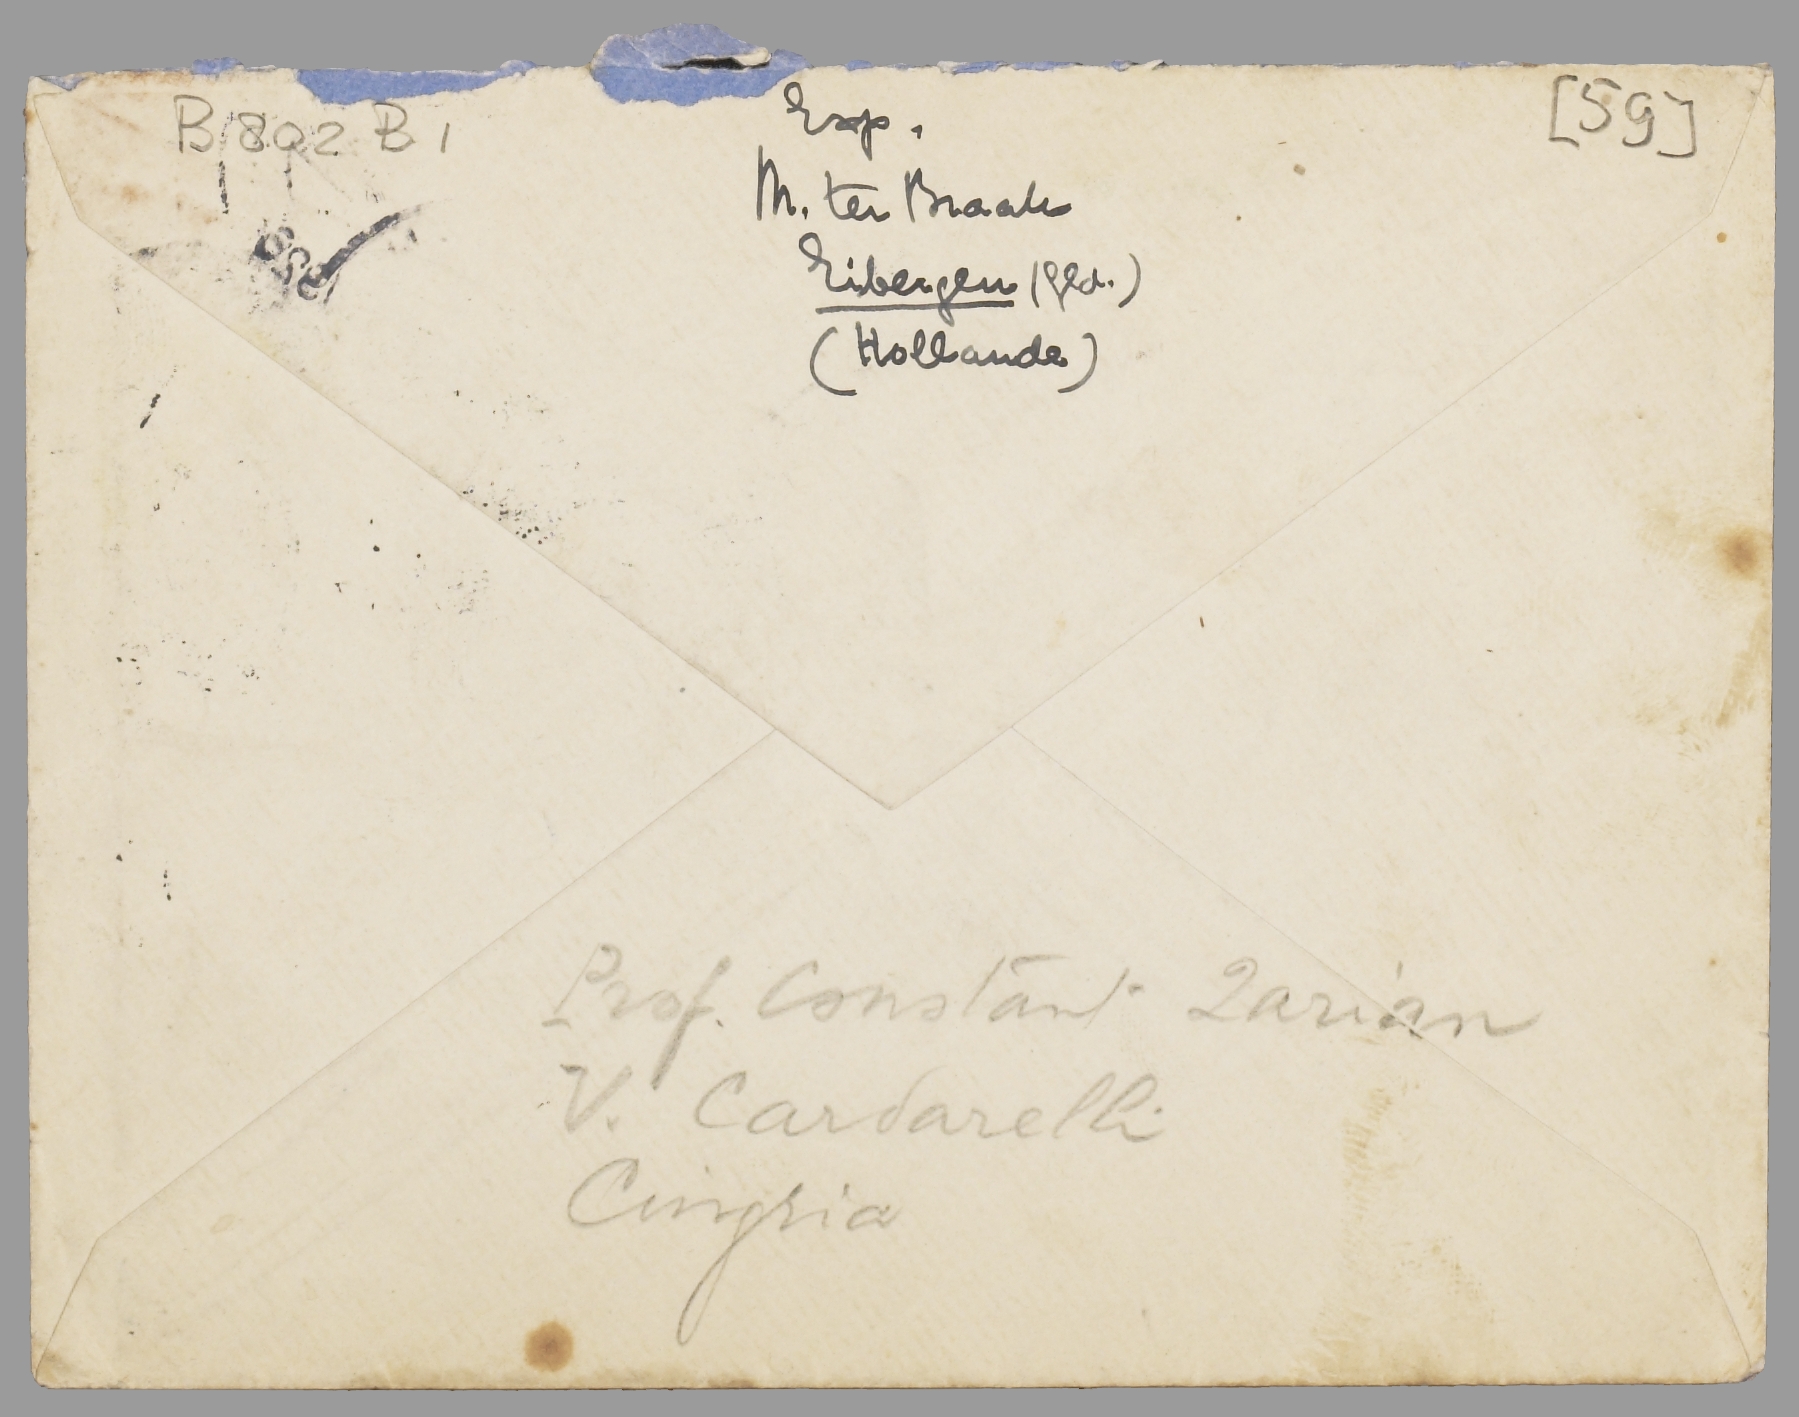 B 802 B 1
[59]
Exp.
M. ter Braak
Eibergen (Gld.)
(Hollande)
Prof. Constant Zarian
V. Cardarelli
Cingria